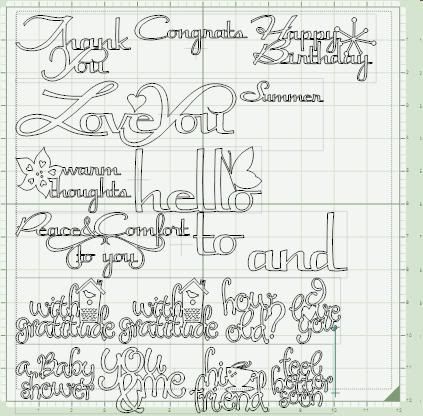 Thank You
Congrats
Happy Birthday
Love You
Summer
warm thoughts
hello
Peace & Comfort to you
to
and
with gratitude
with gratitude
how old?
a Baby shower
you & me
hi friend
feel better soon